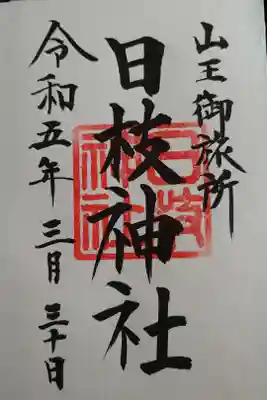 山王御旅所
日枝神社
令和五年三月三十日